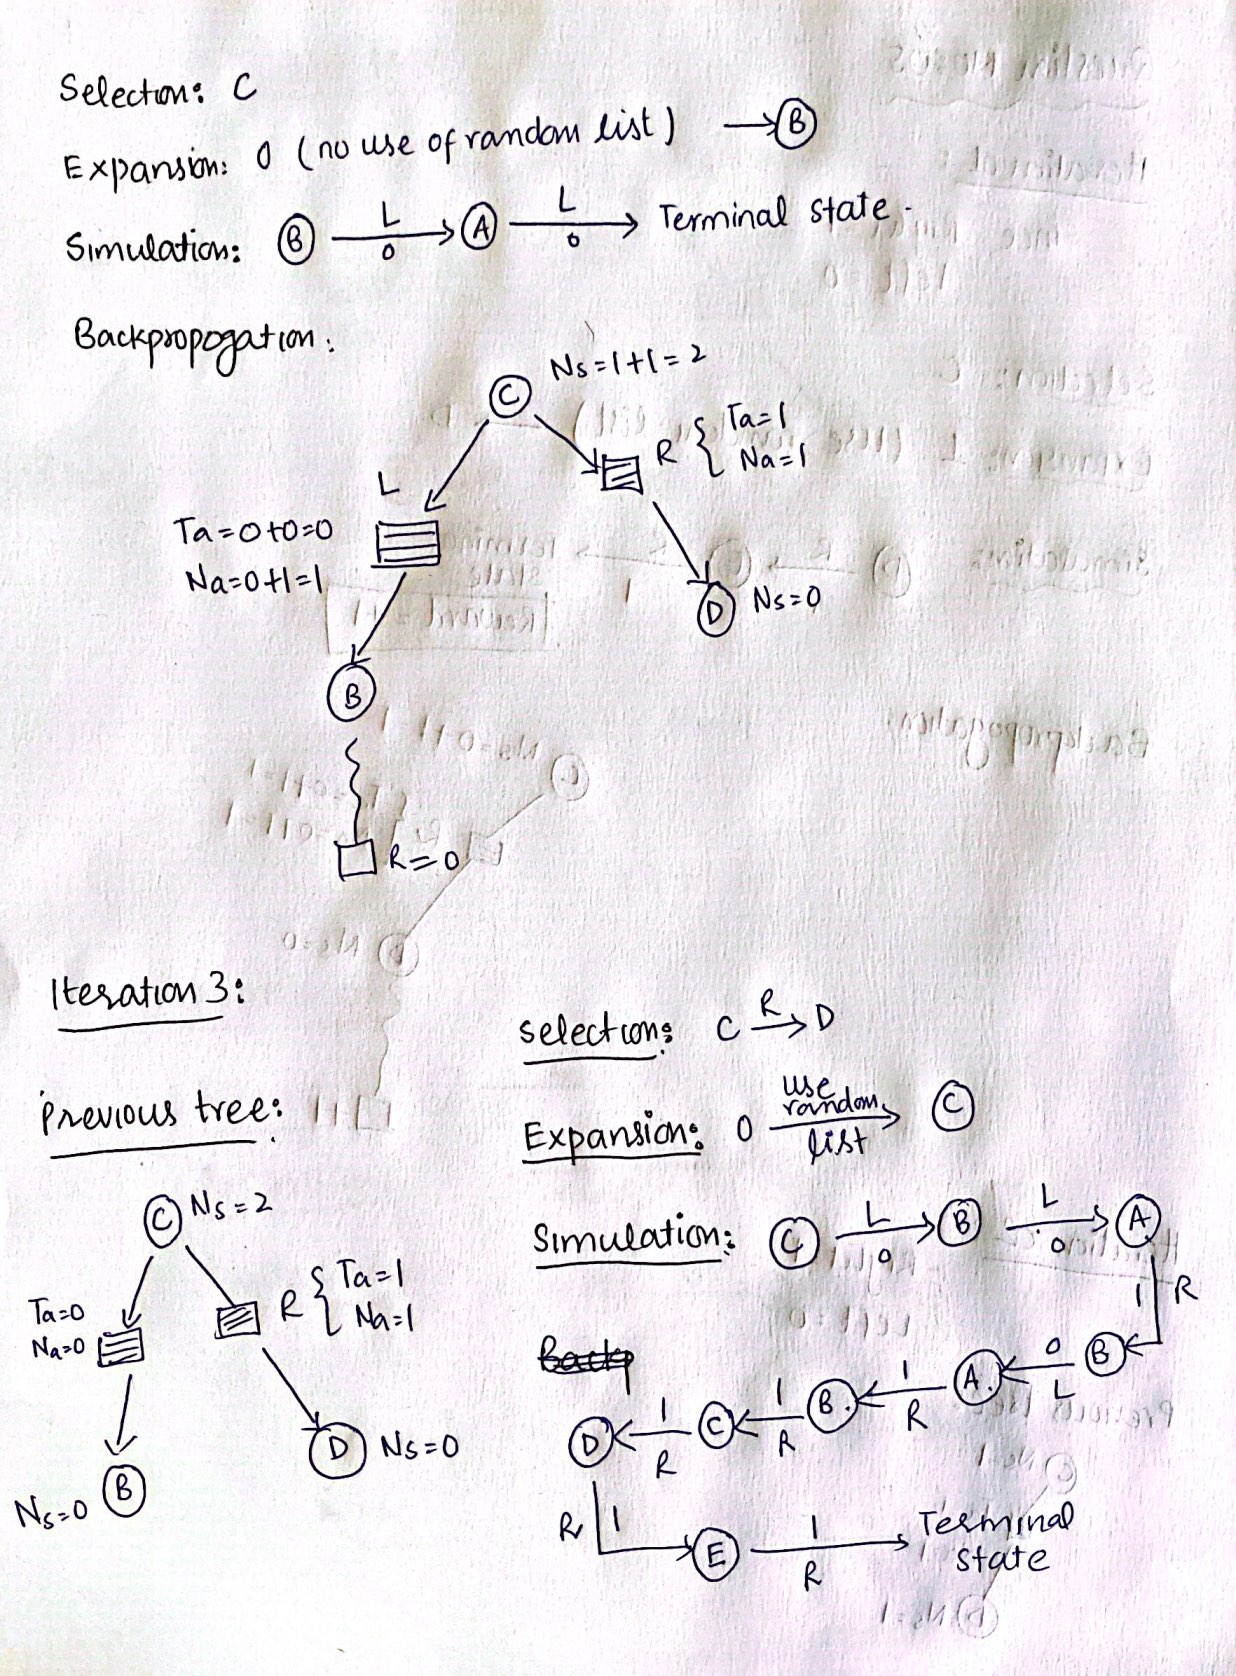 Selection: C
Expansion: 0 (no use of random list) → B
Simulation: B L 0 → A L 0 → Terminal state.
Backpropogation:
C Ns=1+1=2
R { Ta=1
Na=1
L
Ta=0+0=0
Na=0+1=1
D Ns=0
B
R=0
Iteration 3:
Previous tree:
C Ns=2
Ta=0
Na=0
R { Ta=1
Na=1
D Ns=0
Ns=0 B
Selection: C R → D
Expansion: 0 use random list → C
Simulation: C L 0 → B L 0 → A
1 R
D ← 1 R C ← 1 R B. ← 1 R A. ← 0 L B
R 1
E 1 R → Terminal
state